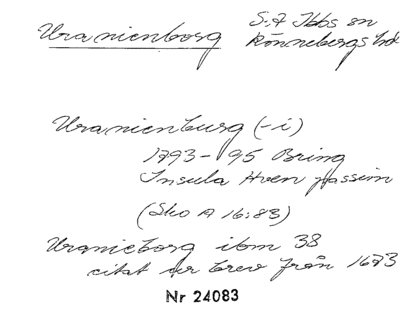 Uranienborg S:t Ibbs sn
Rönnebergs hd
Uranienburg (-i)
1793-95 Bring
Insula Hven passim
(Sko A 16:83)
Uranieborg ibm 38
citat ur brev från 1673
Nr 24083